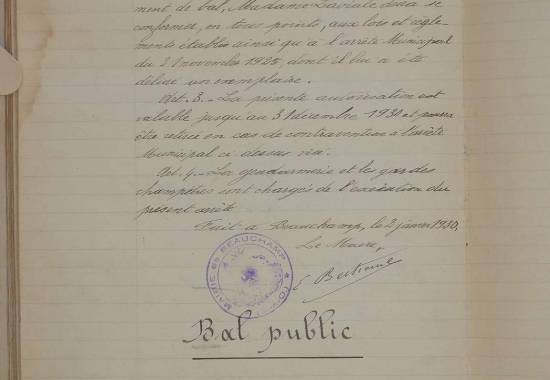 ment de bal, Madame Laviale devra se
conformer, en tous points, aux lois et règle-
ments établis ainsi qu'à l'arrêté Municipal
du 21 novembre 1925, dont il lui a été
délivré un exemplaire.
Art. 3. - La présente autorisation est
valable jusqu'au 31 décembre 1930 et pourra
être retirée en cas de contravention à l'arrêté
Municipal ci-dessus visé.
Art. 4. - La gendarmerie et les gardes
champêtres sont chargés de l'exécution du
présent arrêté
Fait à Beauchamp, le 2 janvier 1930,
Le Maire,
MAIRIE DE BEAUCHAMP
Bal public